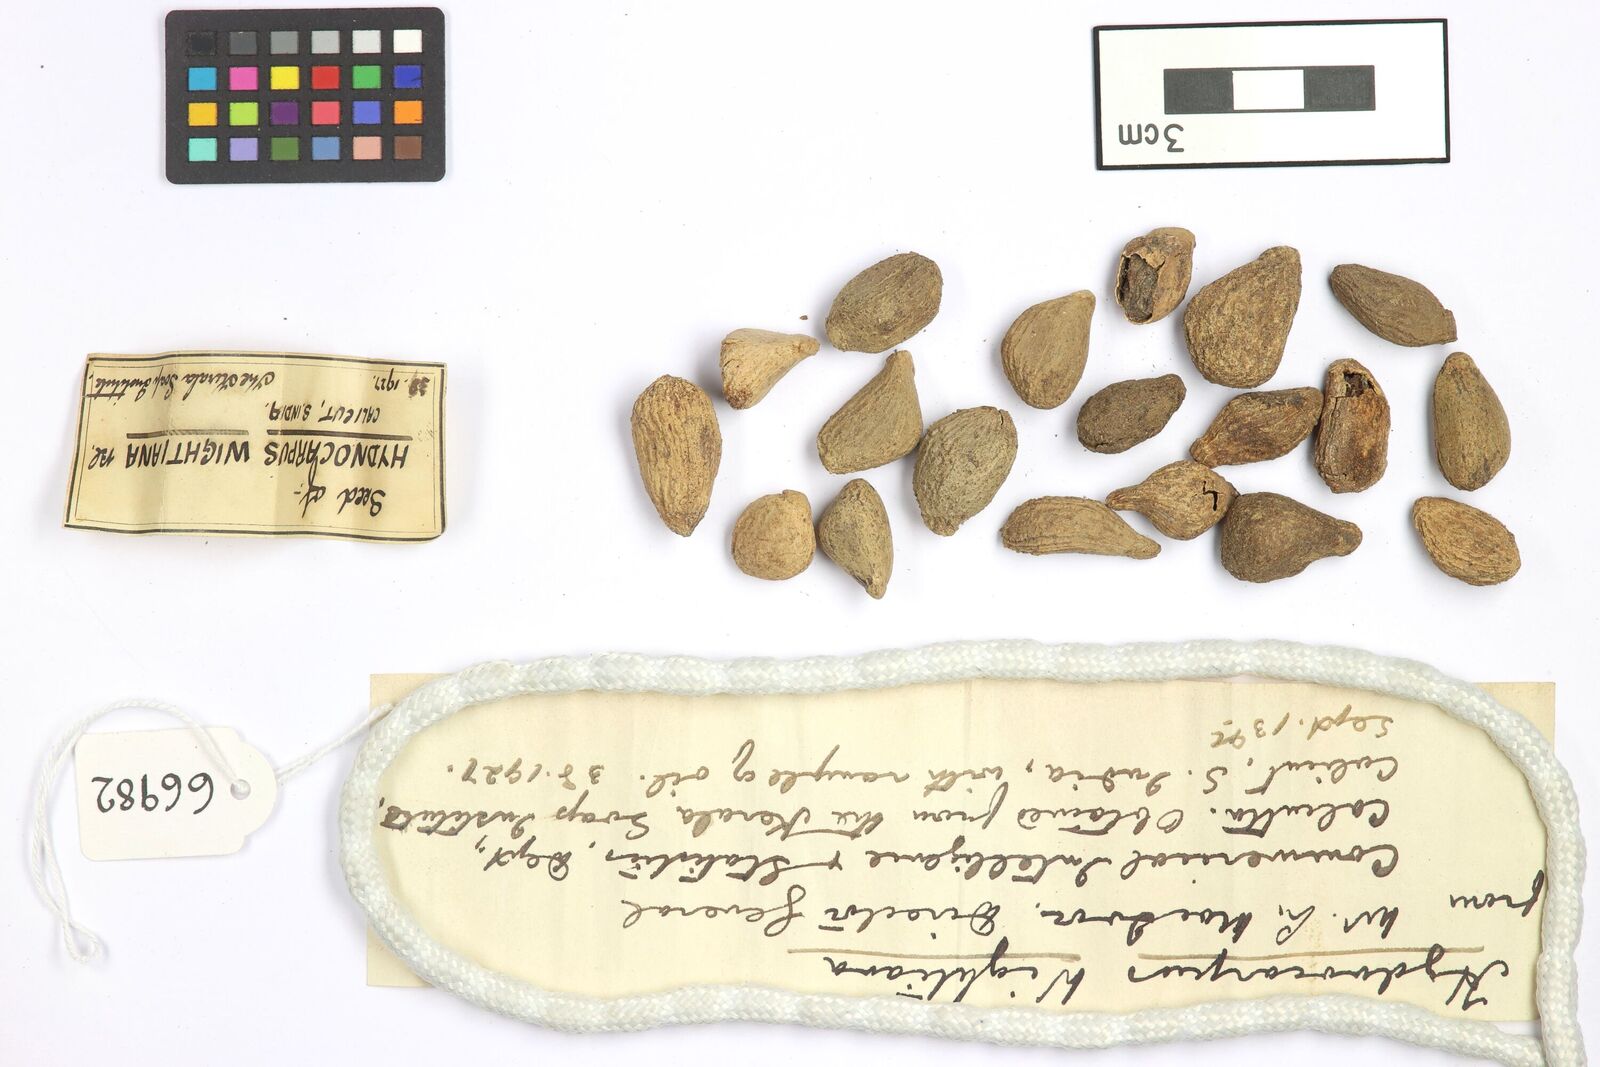 3cm
Seed of:-
HYDNOCARPUS WIGHTIANA Bl.
CALICUT, S. INDIA.
1927. The Kerala Soap Institute.
66982
Hydnocarpus Wightiana
from
Director General
Commercial Intelligence & Statistics, Dept,
Calcutta. Obtained from the Kerala Soap Institute,
Calicut, S. India, with sample of oil. 38.1927.
Sept.